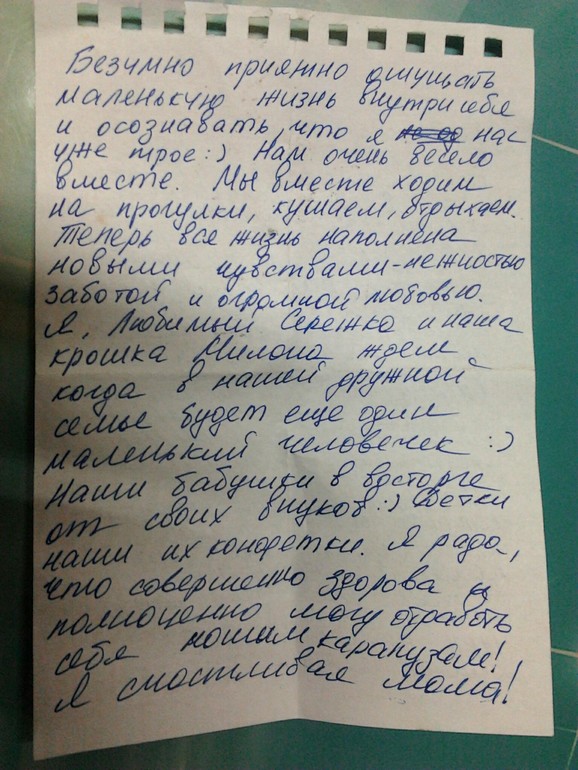 Безумно приятно ощущать
маленькую жизнь внутри себя
и осознавать, что я нас
уже трое :) Нам очень весело
вместе. Мы вместе ходим
на прогулки, кушаем, отдыхаем.
Теперь вся жизнь наполнена
новыми чувствами - нежностью
заботой и огромной любовью.
Я, Любимый Сережка и наша
крошка Милана ждем
когда в нашей дружной
семье будет еще один
маленький человечек :)
Наши бабушки в восторге
от своих внуков :) Детки
наши их конфетки. Я рада,
что совершенно здорова и
полноценно могу отдавать
себя нашим карапузам!
Я счастливая мама!